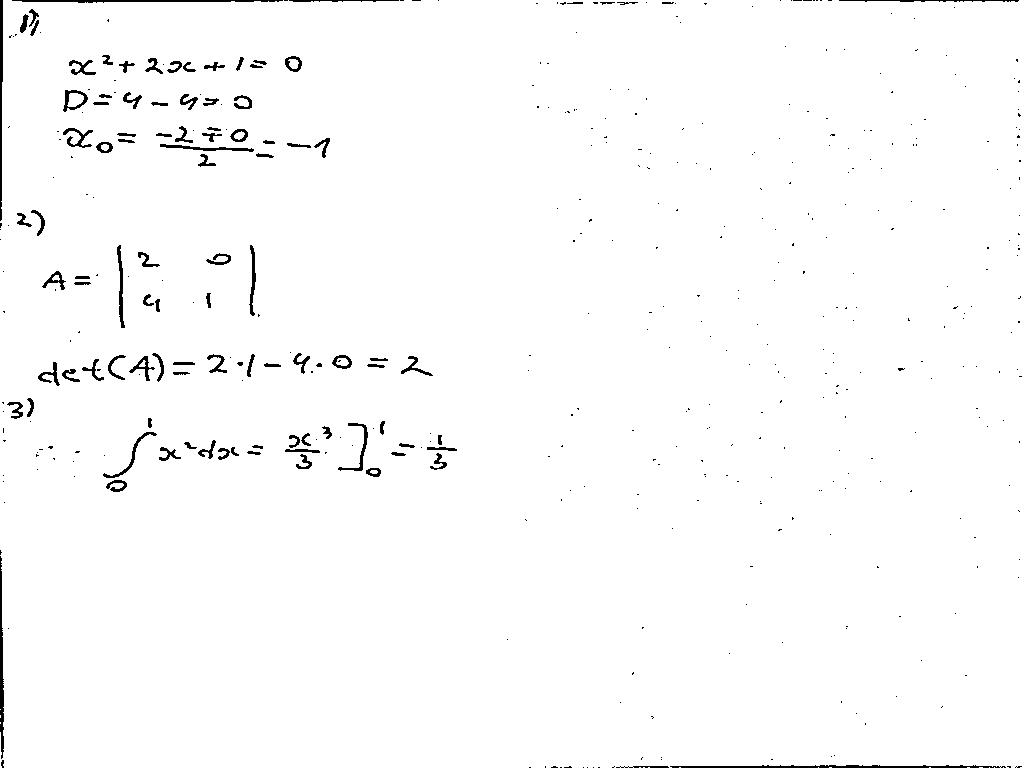 1)
x² + 2x + 1 = 0
D = 4 - 4 = 0
x₀ = (-2 ∓ 0)/2 = -1
2)
A = | 2 0 |
| 4 1 |
det(A) = 2·1 - 4·0 = 2
3)
∫₀¹ x² dx = x³/3 ]₀¹ = 1/3